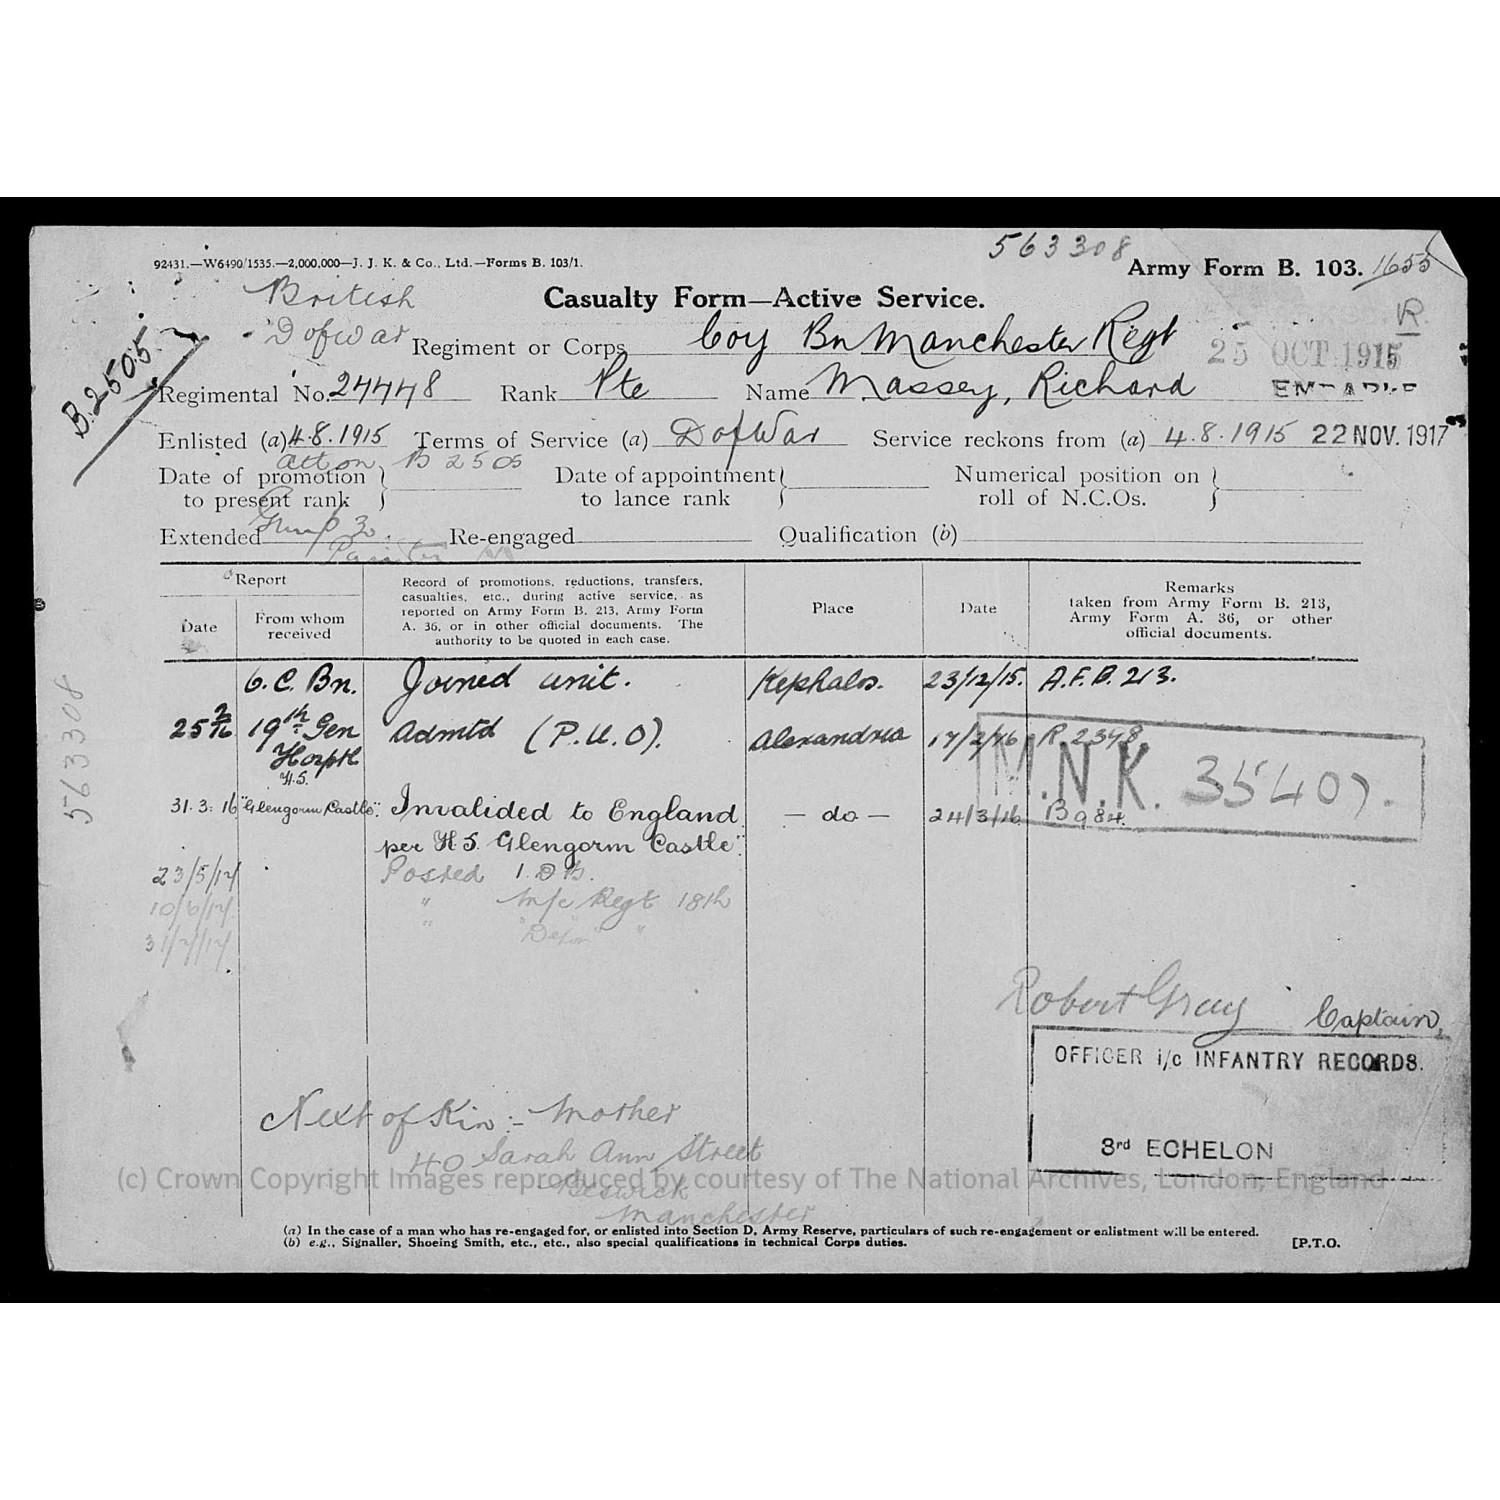 563308
92431.—W6490/1535.—2,000,000—J. J. K. & Co., Ltd.—Forms B. 103/1.
Army Form B. 103. 1655
British
Casualty Form—Active Service.
R
D of War
Regiment or Corps Coy Bn Manchester Regt
25 OCT 1915
B.2505
Regimental No. 24448 Rank Pte Name Massey, Richard
Enlisted (a) 4.8.1915 Terms of Service (a) D of War Service reckons from (a) 4.8.1915 22 NOV. 1917
B 2505
Date of promotion to present rank } Date of appointment to lance rank } Numerical position on roll of N.C.Os. }
Extended Re-engaged Qualification (b)
Report
Date
From whom received
Record of promotions, reductions, transfers,
casualties, etc., during active service, as
reported on Army Form B. 213, Army Form
A. 36, or in other official documents. The
authority to be quoted in each case.
Place
Date
Remarks
taken from Army Form B. 213,
Army Form A. 36, or other
official documents.
6. C. Bn. Joined unit. Kephalos. 23/12/15. A.F.B. 213.
25 2/16 19th Gen Admtd (P.U.O). Alexandria 17/2/16 R 2348
H.S.
M.N.K. 35407.
31.3.16 "Glengorm Castle". Invalided to England — do — 24/3/16 B984.
per H.S. Glengorm Castle".
23/5/17 Posted 1.DB.
10/6/17 " M/c Regt 18th
" "Depot" "
563308
Robert Gray Captain,
OFFICER i/c INFANTRY RECORDS.
3rd ECHELON
Next of Kin :- Mother
40 Sarah Ann Street
Beswick
Manchester
(c) Crown Copyright Images reproduced by courtesy of The National Archives, London, England
(a) In the case of a man who has re-engaged for, or enlisted into Section D, Army Reserve, particulars of such re-engagement or enlistment will be entered.
(b) e.g., Signaller, Shoeing Smith, etc., etc., also special qualifications in technical Corps duties.
[P.T.O.